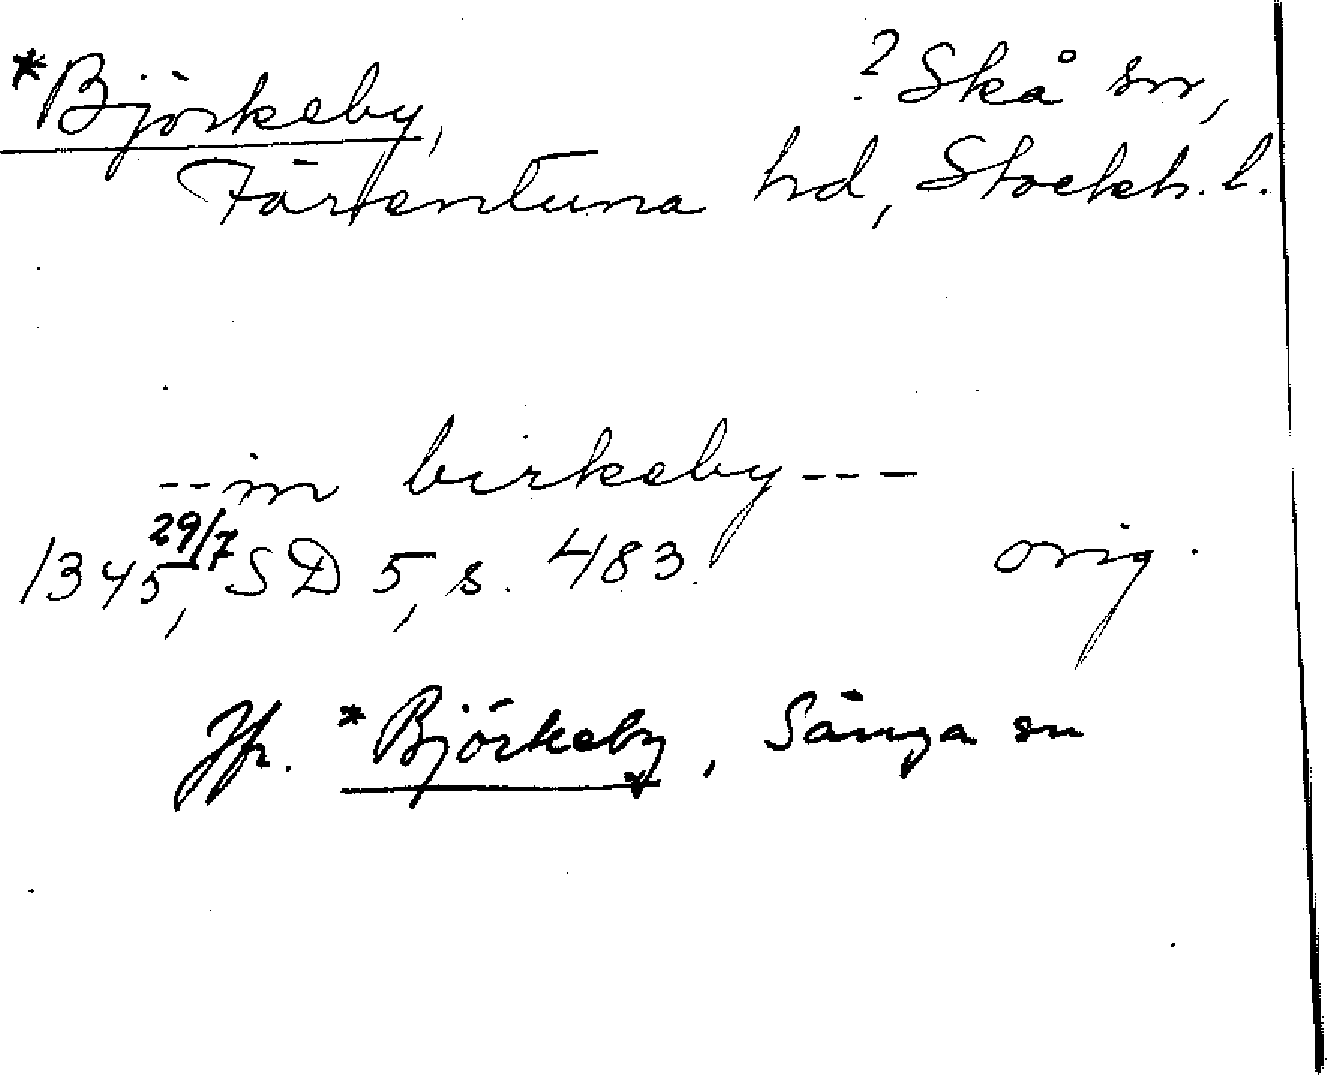 *Björkeby, ? Skå sn,
Färentuna hd, Stockh. l.
-- in birkeby ---
1345 29/7, SD 5, s. 483. orig.
Jfr. *Björkeby, Sånga sn